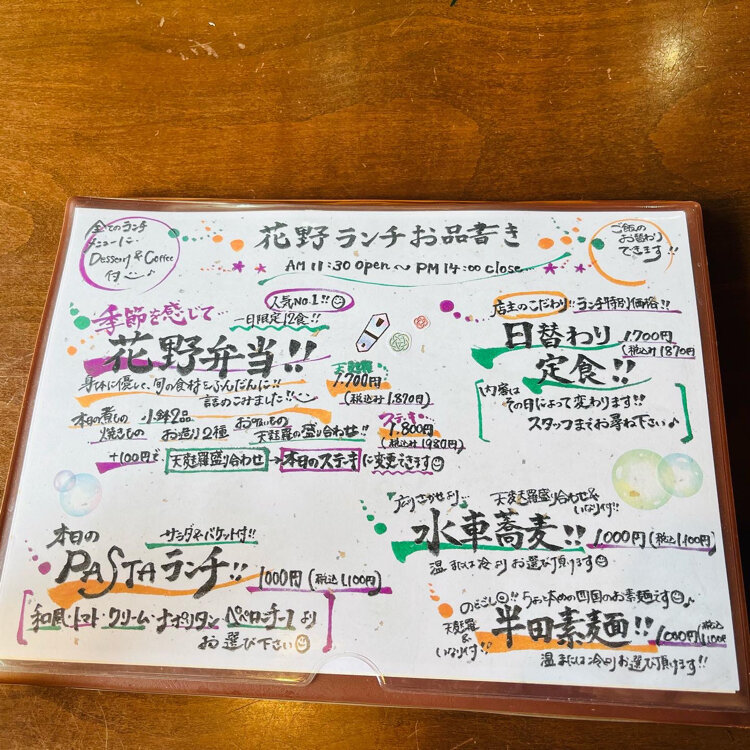 全てのランチ
メニューに
Dessert & Coffee
付
花野ランチお品書き
AM 11:30 open～PM 14:00 close
ご飯の
お替わり
できます!!
人気No.1!!
一日限定12食!!
季節を感じて…
花野弁当!!
身体に優しく、旬の食材をふんだんに!!
詰めこみました!!
天婦羅
1,700円
(税込み1,870円)
本日の煮もの 小鉢2品 お吸いもの
焼きもの お造り2種 天婦羅の盛り合わせ!!
ステーキ
1,800円
(税込み1,980円)
+100円で 天婦羅盛り合わせ→本日のステーキに変更できます
店主のこだわり!! ランチ特別価格!!
日替わり
定食!!
1,700円
(税込み1,870円
内容は
その日によって変わります!!
スタッフまでお尋ね下さい♪
本日の
サラダ&バケット付!!
PASTAランチ!! 1000円(税込1,100円)
和風・トマト・クリーム・ナポリタン・ペペロンチーノより
お選び下さい
天婦羅盛り合わせ&
いなり付!!
水車蕎麦!! 1000円(税込1,100円)
温または冷よりお選び頂けます
のどごし◎!! 四国のお素麺です♪
天婦羅
&
いなり付!!
半田素麺!! 1000円(税込
1,100円
温または冷よりお選び頂けます!!